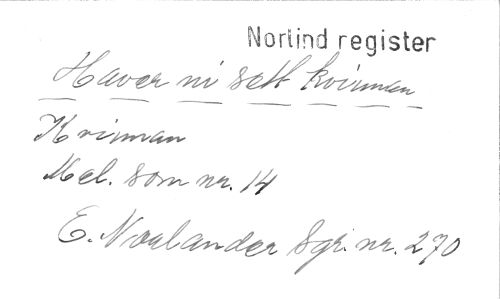 Norlind register
Haver ni sett kvinnan
Kvinnan
Mel. som nr. 14
E. Noalander Sgr. nr. 270